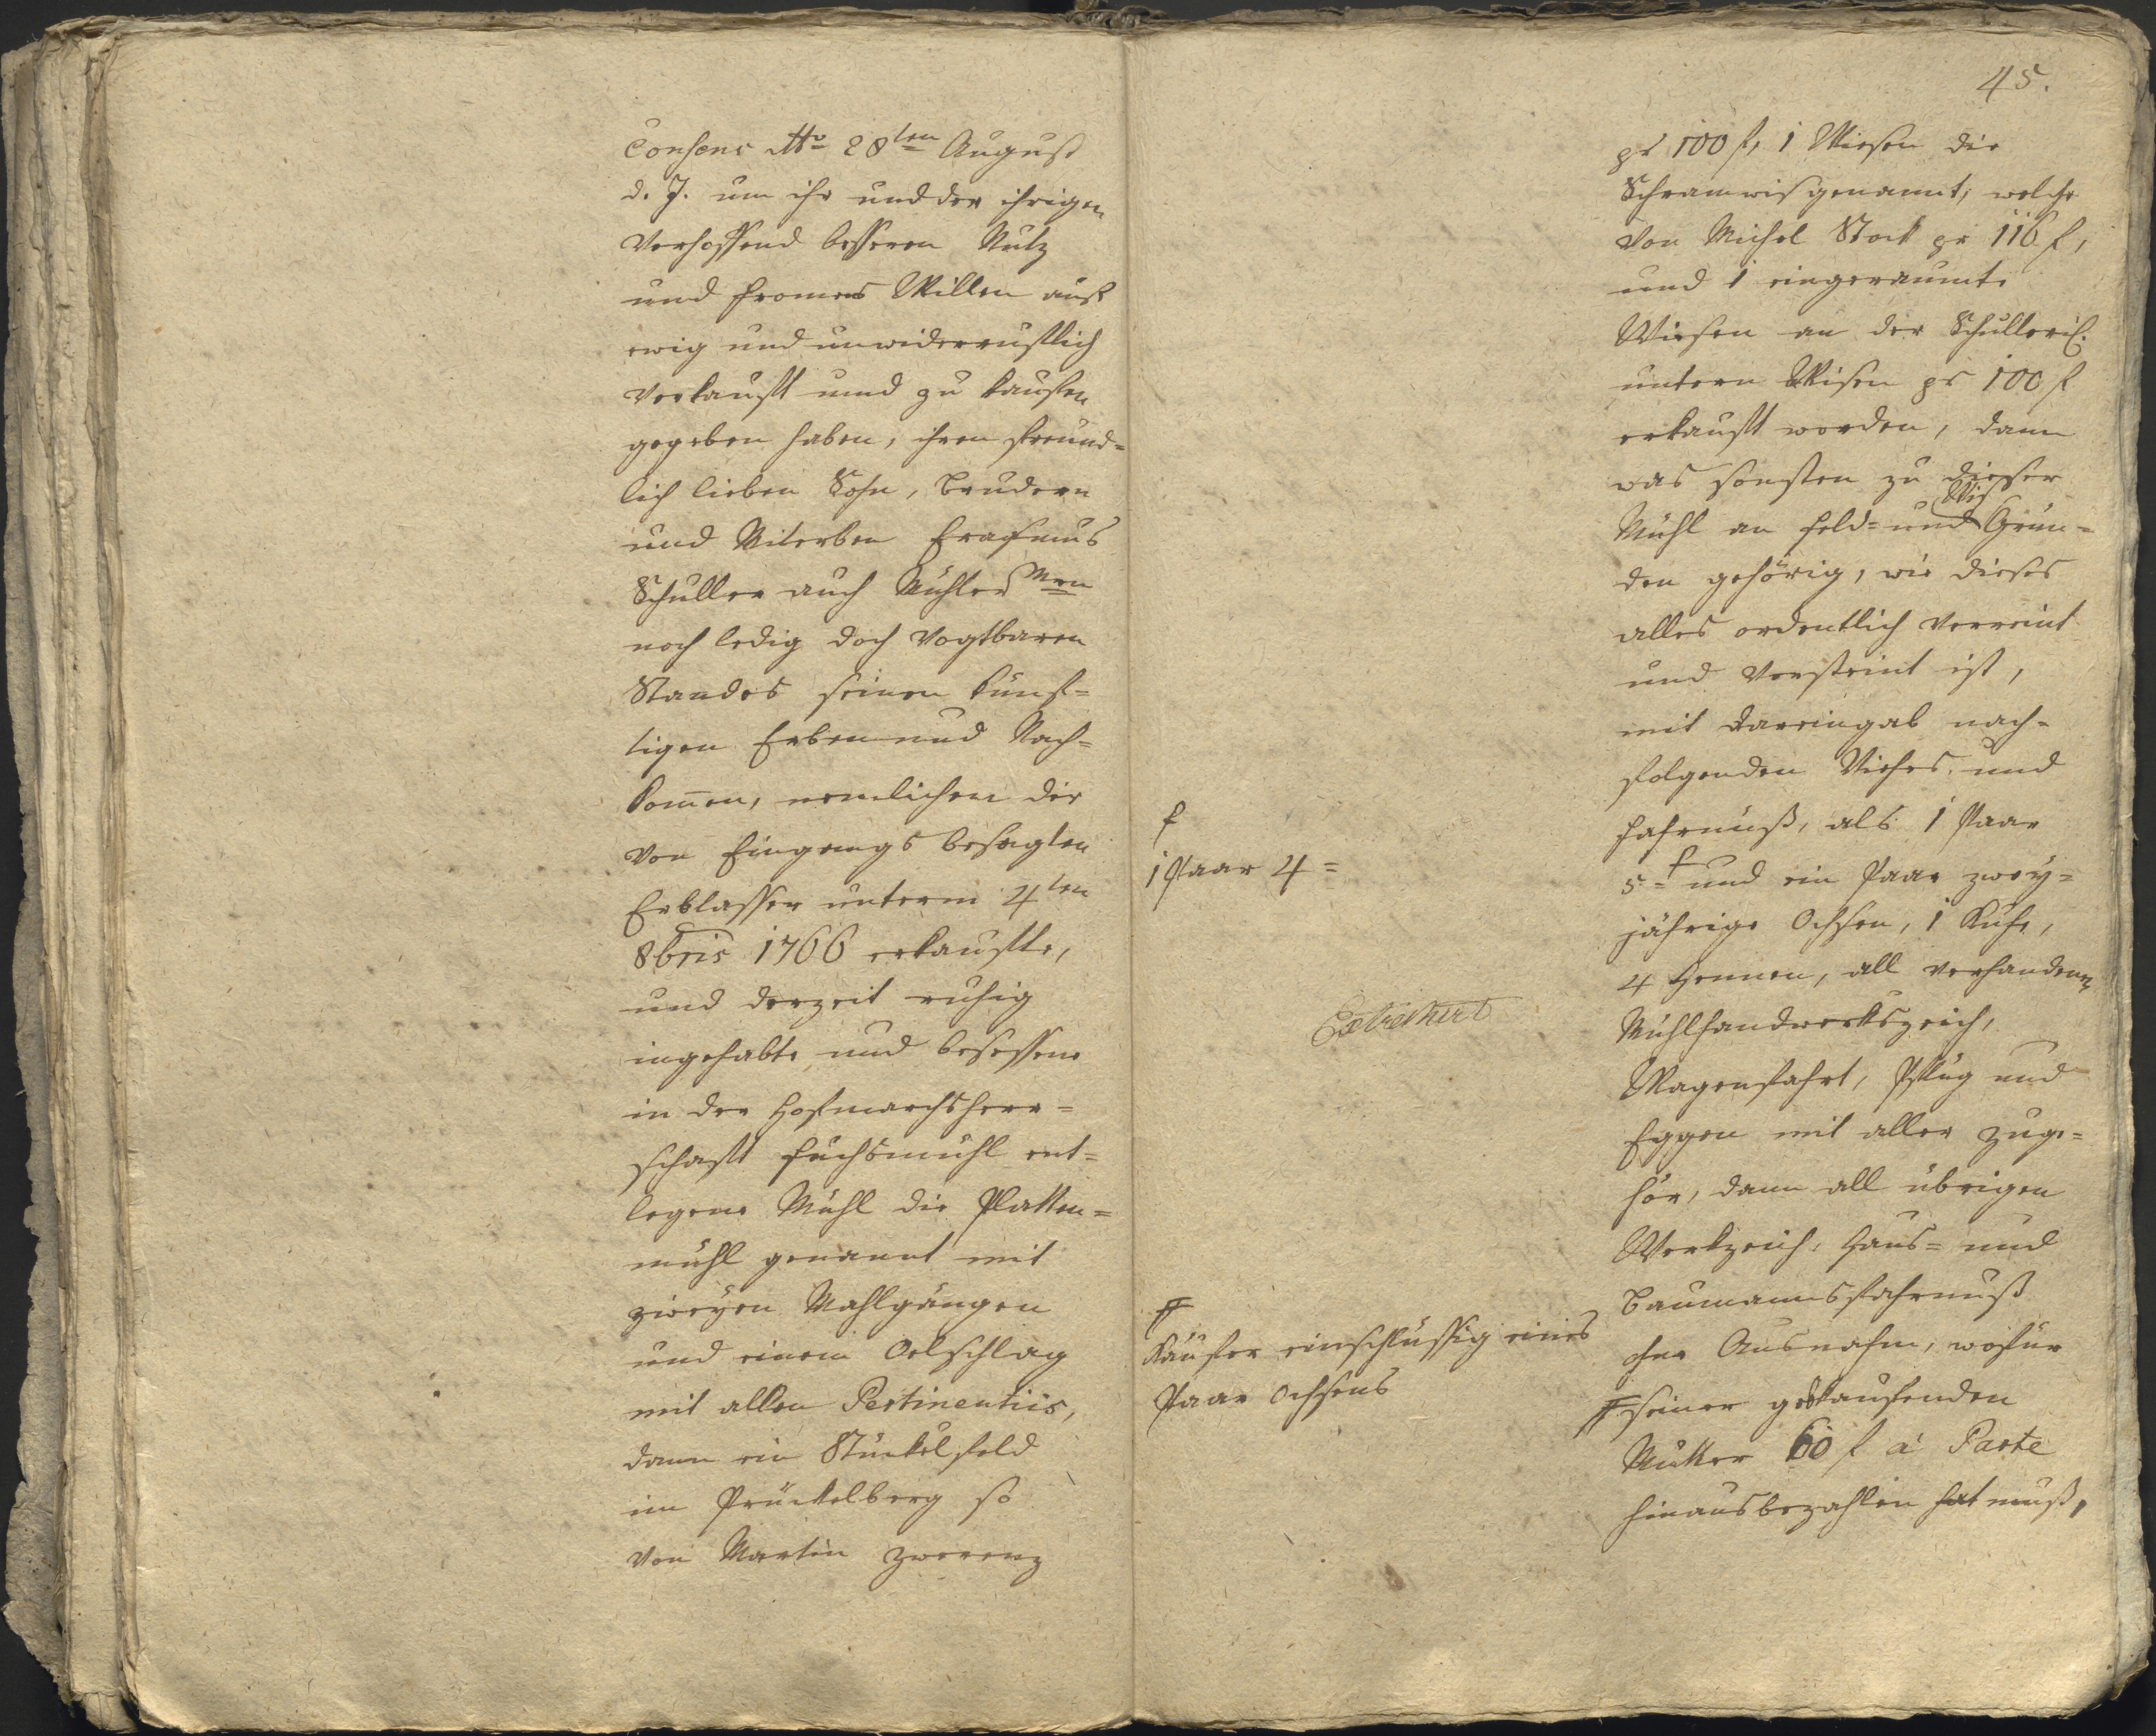 Consens dtto 28ten August
d. J. um ihr und der ihrigen
verhoffend besseren Nutz
und fromens Willen auf
ewig und unwiderruflich
verkauft und zu kaufen
gegeben haben, ihren freund=
lich lieben Sohn, Brudern
und Miterben Erasmus
Schuller auch Mühler
noch ledig doch vogtbaren
Standes seinen künf=
tigen Erben und Nach=
komen, nemlichen die
von Eingangs besagten
Erblasser unterm 4ten
8bris 1766 erkaufte,
und derzeit ruhig
ingehabte und besessene
in der Hofmarchsherr=
schaft Fuchsmühl ent=
legene Mühl die Platten=
mühl genannt mit
zweyen Mahlgängen
und einem Oelschlag
mit allen Pertinentiis,
dann ein Stückel feld
im Prückelberg so
von Martin Zwerenz
45.
pr 100 f, 1 Wiesen die
Schramwis genannt, welche
von Michel Stock pr 116 f,
und 1 eingeraumte
Wiesen an der Schulleris.
untern Wisen pr 100 f
erkauft worden, dann
was sonsten zu dieser
Wis
Mühl an feld= und Grün=
den gehörig, wie dieses
alles ordentlich verreint
und versteint ist,
mit dareingab nach=
folgenden Viehes und
fahrnuß, als 1 Paar
5= f und ein Paar zwey=
jährige Ochsen, 1 Kuhe,
4 Hennen, all verhandenen
Mühlhandwerkszeich,
Wagenfahrt, Pflug und
Eggen mit aller zuge=
hör, dann all übrigen
Werkzeich, Haus= und
Baumannsfahrnuß
ohne Ausnahm, wofür
ff seiner verkaufenden
Mutter 60 f a Parte
hinausbezahlen hat muß,
f
1 Paar 4=
Extrahirt
ff
Käufer einschlüssig eines
Paar Ochsens